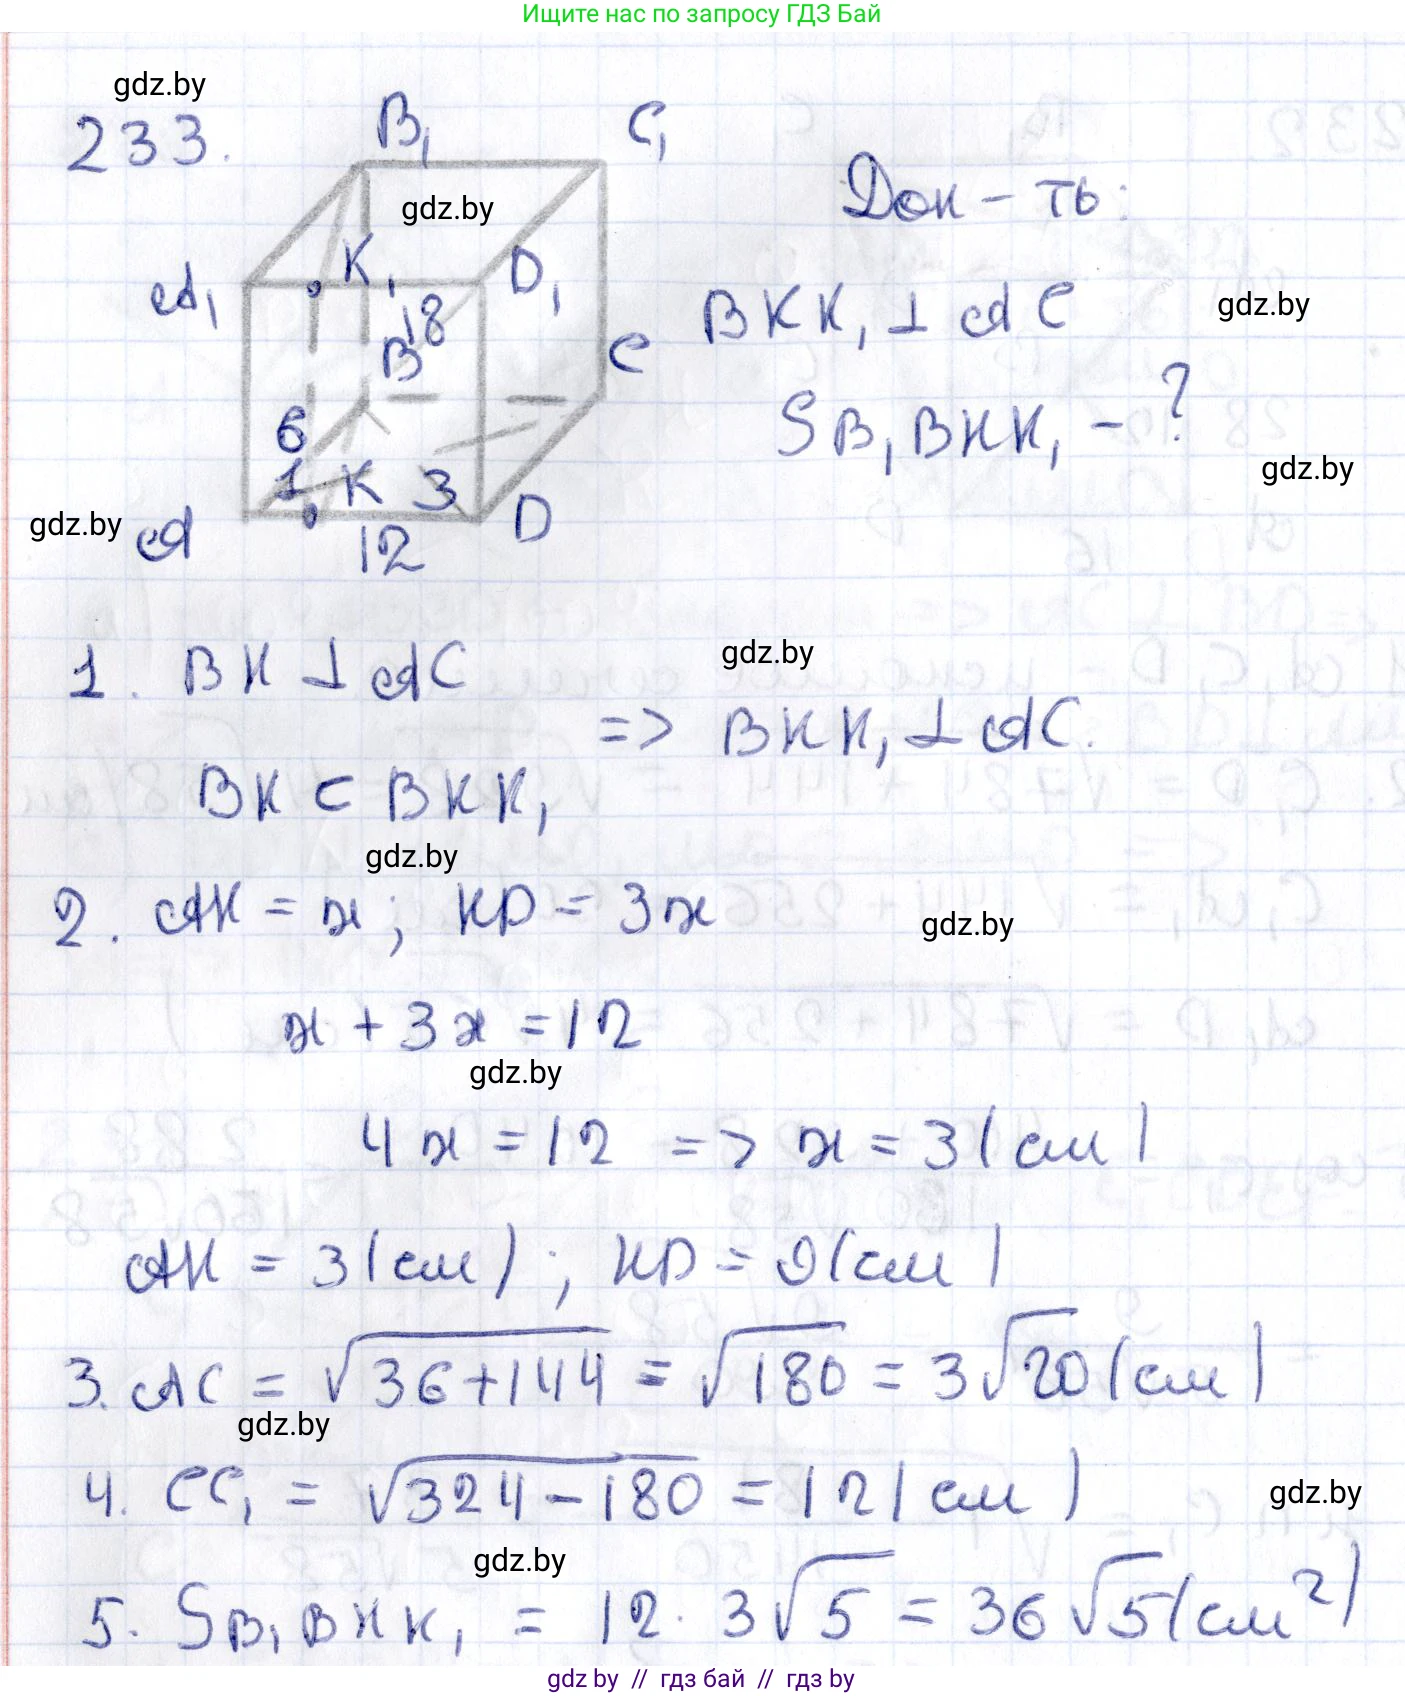 Ищите нас по запросу ГДЗ Бай
gdz.by
233.
B₁ C₁
gdz.by
Док-ть:
A₁ K₁ D₁
18
BKK₁ ⊥ AC
gdz.by
B C
S B₁BKK₁ - ?
6
gdz.by
1 K 3
gdz.by
A 12 D
1. BK ⊥ AC
gdz.by
=> BKK₁ ⊥ AC.
BK ⊂ BKK₁
gdz.by
2. AK = x; KD = 3x
gdz.by
x + 3x = 12
gdz.by
4x = 12 => x = 3 (см)
AK = 3 (см); KD = 9 (см)
3. AC = √36+144 = √180 = 3√20 (см)
gdz.by
4. CC₁ = √324-180 = 12 (см)
gdz.by
gdz.by
5. S B₁BKK₁ = 12 · 3√5 = 36√5 (см²)
gdz.by // гдз бай // гдз by